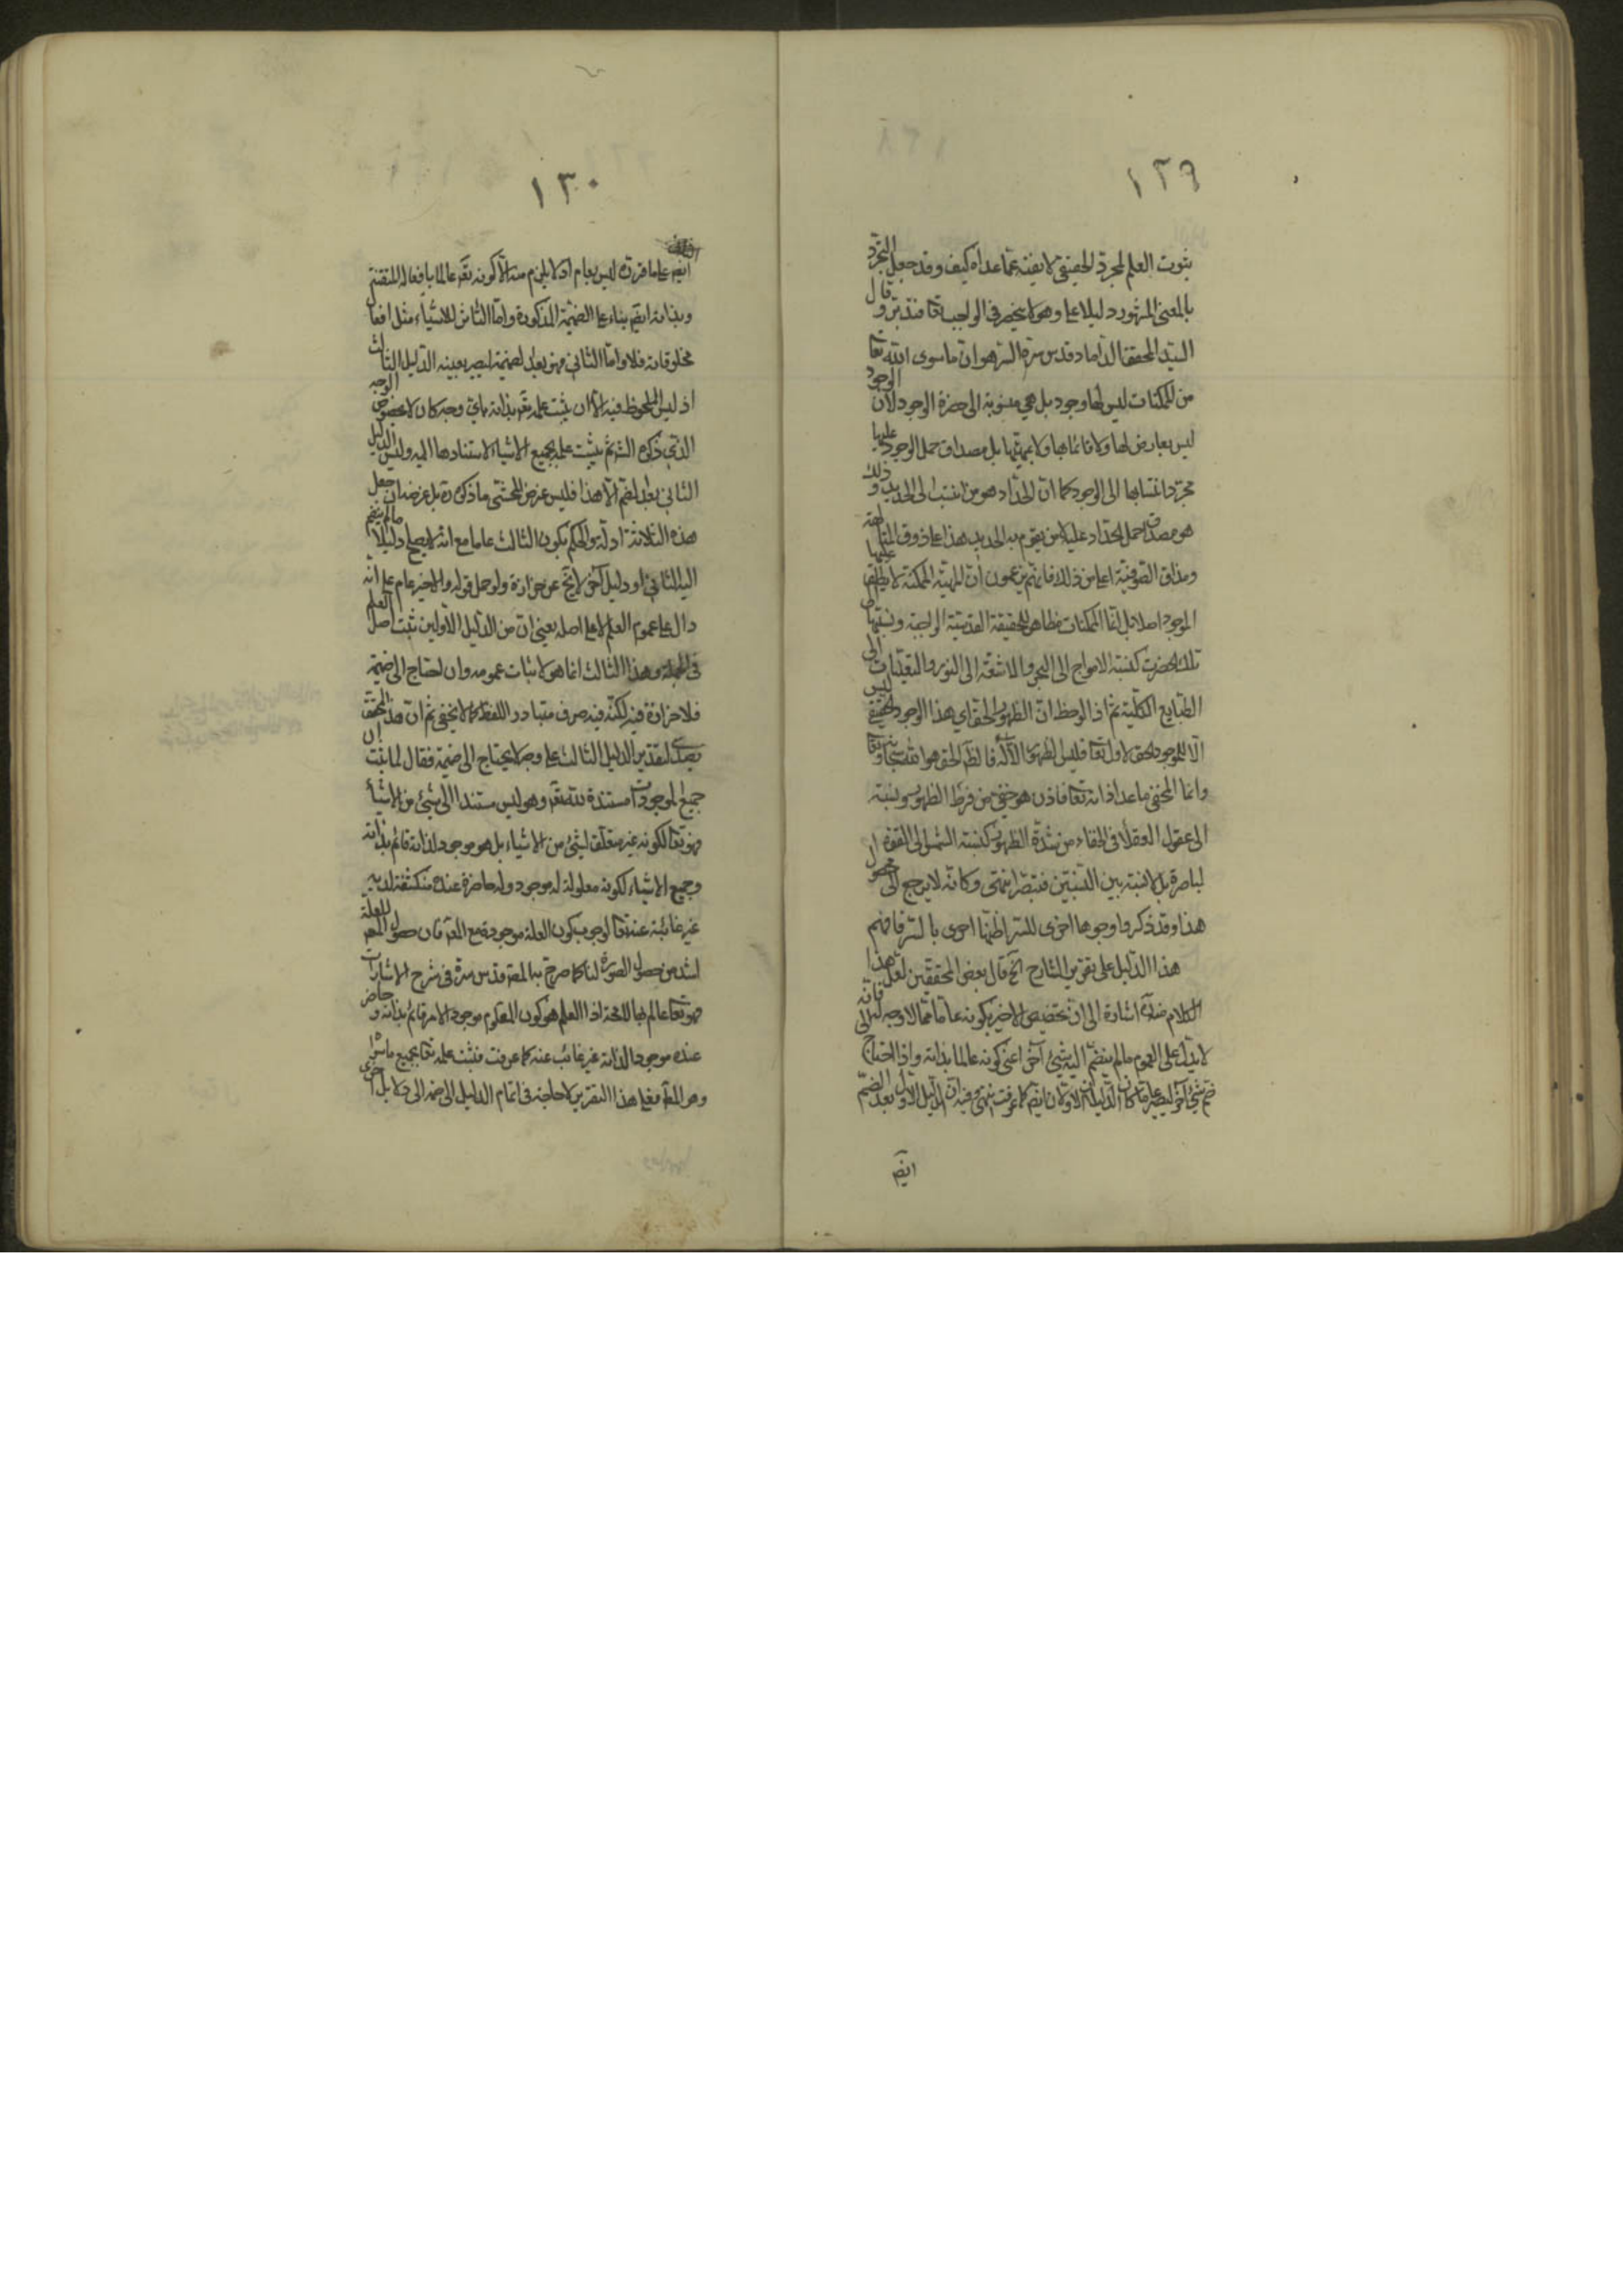 ١٢٩
ثبوت العلم لمجرد الحقيقى لا يفيته عما عداه كيف وقد جعل التجرد
بالمعنى المشهور دليلا على وهو لا ينحصر فى الواجب تعا فتدبر وقال
السيد المحقق الداماد قدس سره السر هو ان ما سوى الله تعا
من الممكنات ليس لها وجود بل هى منسوبة الى حضرة الوجود لان الوجود
ليس بعارض لها ولا قائما بها ولا بل مصداق حمل الوجود عليها
مجرد انتسابها الى الوجود كما ان الحداد هو من انتسب الى الحديد وذلك
هو مصداق حمل الحداد عليه لا من يقوم به الحديد هذا على ذوق المتألهة
ومذاق الصوفية اعلى من ذلك فانهم يزعمون ان المهية الممكنة لا يطلق عليها
الموجود اصلا بل انما الممكنات مظاهر للحقيقة الواجبة ونسبتها
تلك الحضرت كنسبة الامواج الى البحر والاشعة الى النور والتعينات الى
الطبايع الكلية ثم اذا لوحظ ان الظهور الحق اى هذا الوجود الحقيقى ليس
الا للموجود الحق الاول تعا فليس الظهور الا له فالظاهر الحق هو الله سبحانه وتعا
وانما المخفى ما عدا ذاته تعا فاذن هو خفى من فرط الظهور ونسبته
الى عقول العقلا فى الخفاء من شدة الظهور كنسبة الشمس الى القوة
الباصرة بل لا نسبة بين النسبتين فتبصر انتهى وكانه لا يرجع الى محصول
هذا وقد ذكروا وجوها اخرى للسر اظنها احرى بالستر فافهم
هذا الدليل على تقرير الشارح آلخ قال بعض المحققين لعل هذا
الكلام منه اشارة الى ان تخصيص الاخير بكونه عاما مما لا وجه له فانه
لا يدل على العموم ما لم ينضم اليه شىء آخر اعنى كونه عالما بذاته واذا احتاج الى
ضم شىء آخر ليصير عاما كان الدليلان الاولان ايضا كما عرفت انتهى وفيه ان الدليل الاول بعد الضم
ايضا
١٣٠
ايضا على ما قرره ليس بعام اذ لا يلزم منه الا كونه تعا عالما بافعاله المتقنة
وبذاته ايضا بناء على الضميمة المذكورة واما الثانى للاشياء مثل افعال
مخلوقاته فلا واما الثانى فهو بعد الضميمة يصير بعينه الدليل الثالث
اذ ليس الملحوظ فيه الا ان يثبت علمه تعا بذاته باى وجه كان لا بخصوص الوجه
الذى ذكره الشرثم يثبت علمه بجميع الاشياء لاستنادها اليه وليس الدليل
الثانى بعد الضم الا هذا فليس غرض المحشى ما ذكره بل غرضه ان جعل
هذه الثلاثة ادلة والحكم بكون الثالث عاما مع انه لا يصلح دليلا ما لم ينضم
اليه الثانى او دليل آخر لا يخ عن حزازة ولو حمل قوله والاخير عام على انه
دال على عموم العلم لا على اصله يعنى ان من الدليل الاولين ثبت اصل العلم
فى الجملة وهذا الثالث انما هو لاثبات عمومه وان احتاج الى ضميمة
فلا حزازة فيه لكنه فيه صرف متبادر اللفظ كما لا يخفى ثم ان هذا المحقق
تصدى لتقرير الدليل الثالث على وجه لا يحتاج الى ضميمة فقال لما ثبت ان
جميع الموجودات مستندة لله تعا وهو ليس مستندا الى شىء من الاشياء
فهو تعا لكونه غير متعلق لشىء من الاشياء بل هو موجود لذاته قائم بذاته
وجميع الاشياء لكونه معلولة له موجود وله حاضرة عنده منكشفة لديه
غير غائبة عنه تعا لوجوب كون العلة موجودة مع المعلول فان حصول المعلول للعلة
اشد من حصول الصورة لنا كما صرح به المصر قدس سره فى شرح الاشارات
فهو تعا عالم بها اذا العلم هو كون المعلوم موجود الامر قائم بذاته وحاضر
عنده موجودا لذاته غير غائب عنه كما عرفت فثبت علمه تعا بجميع ما سواه
وهو المطلوب فعلى هذا التقرير لا حاجة فى اتمام الدليل الى ضمه الى دلايل اخرى